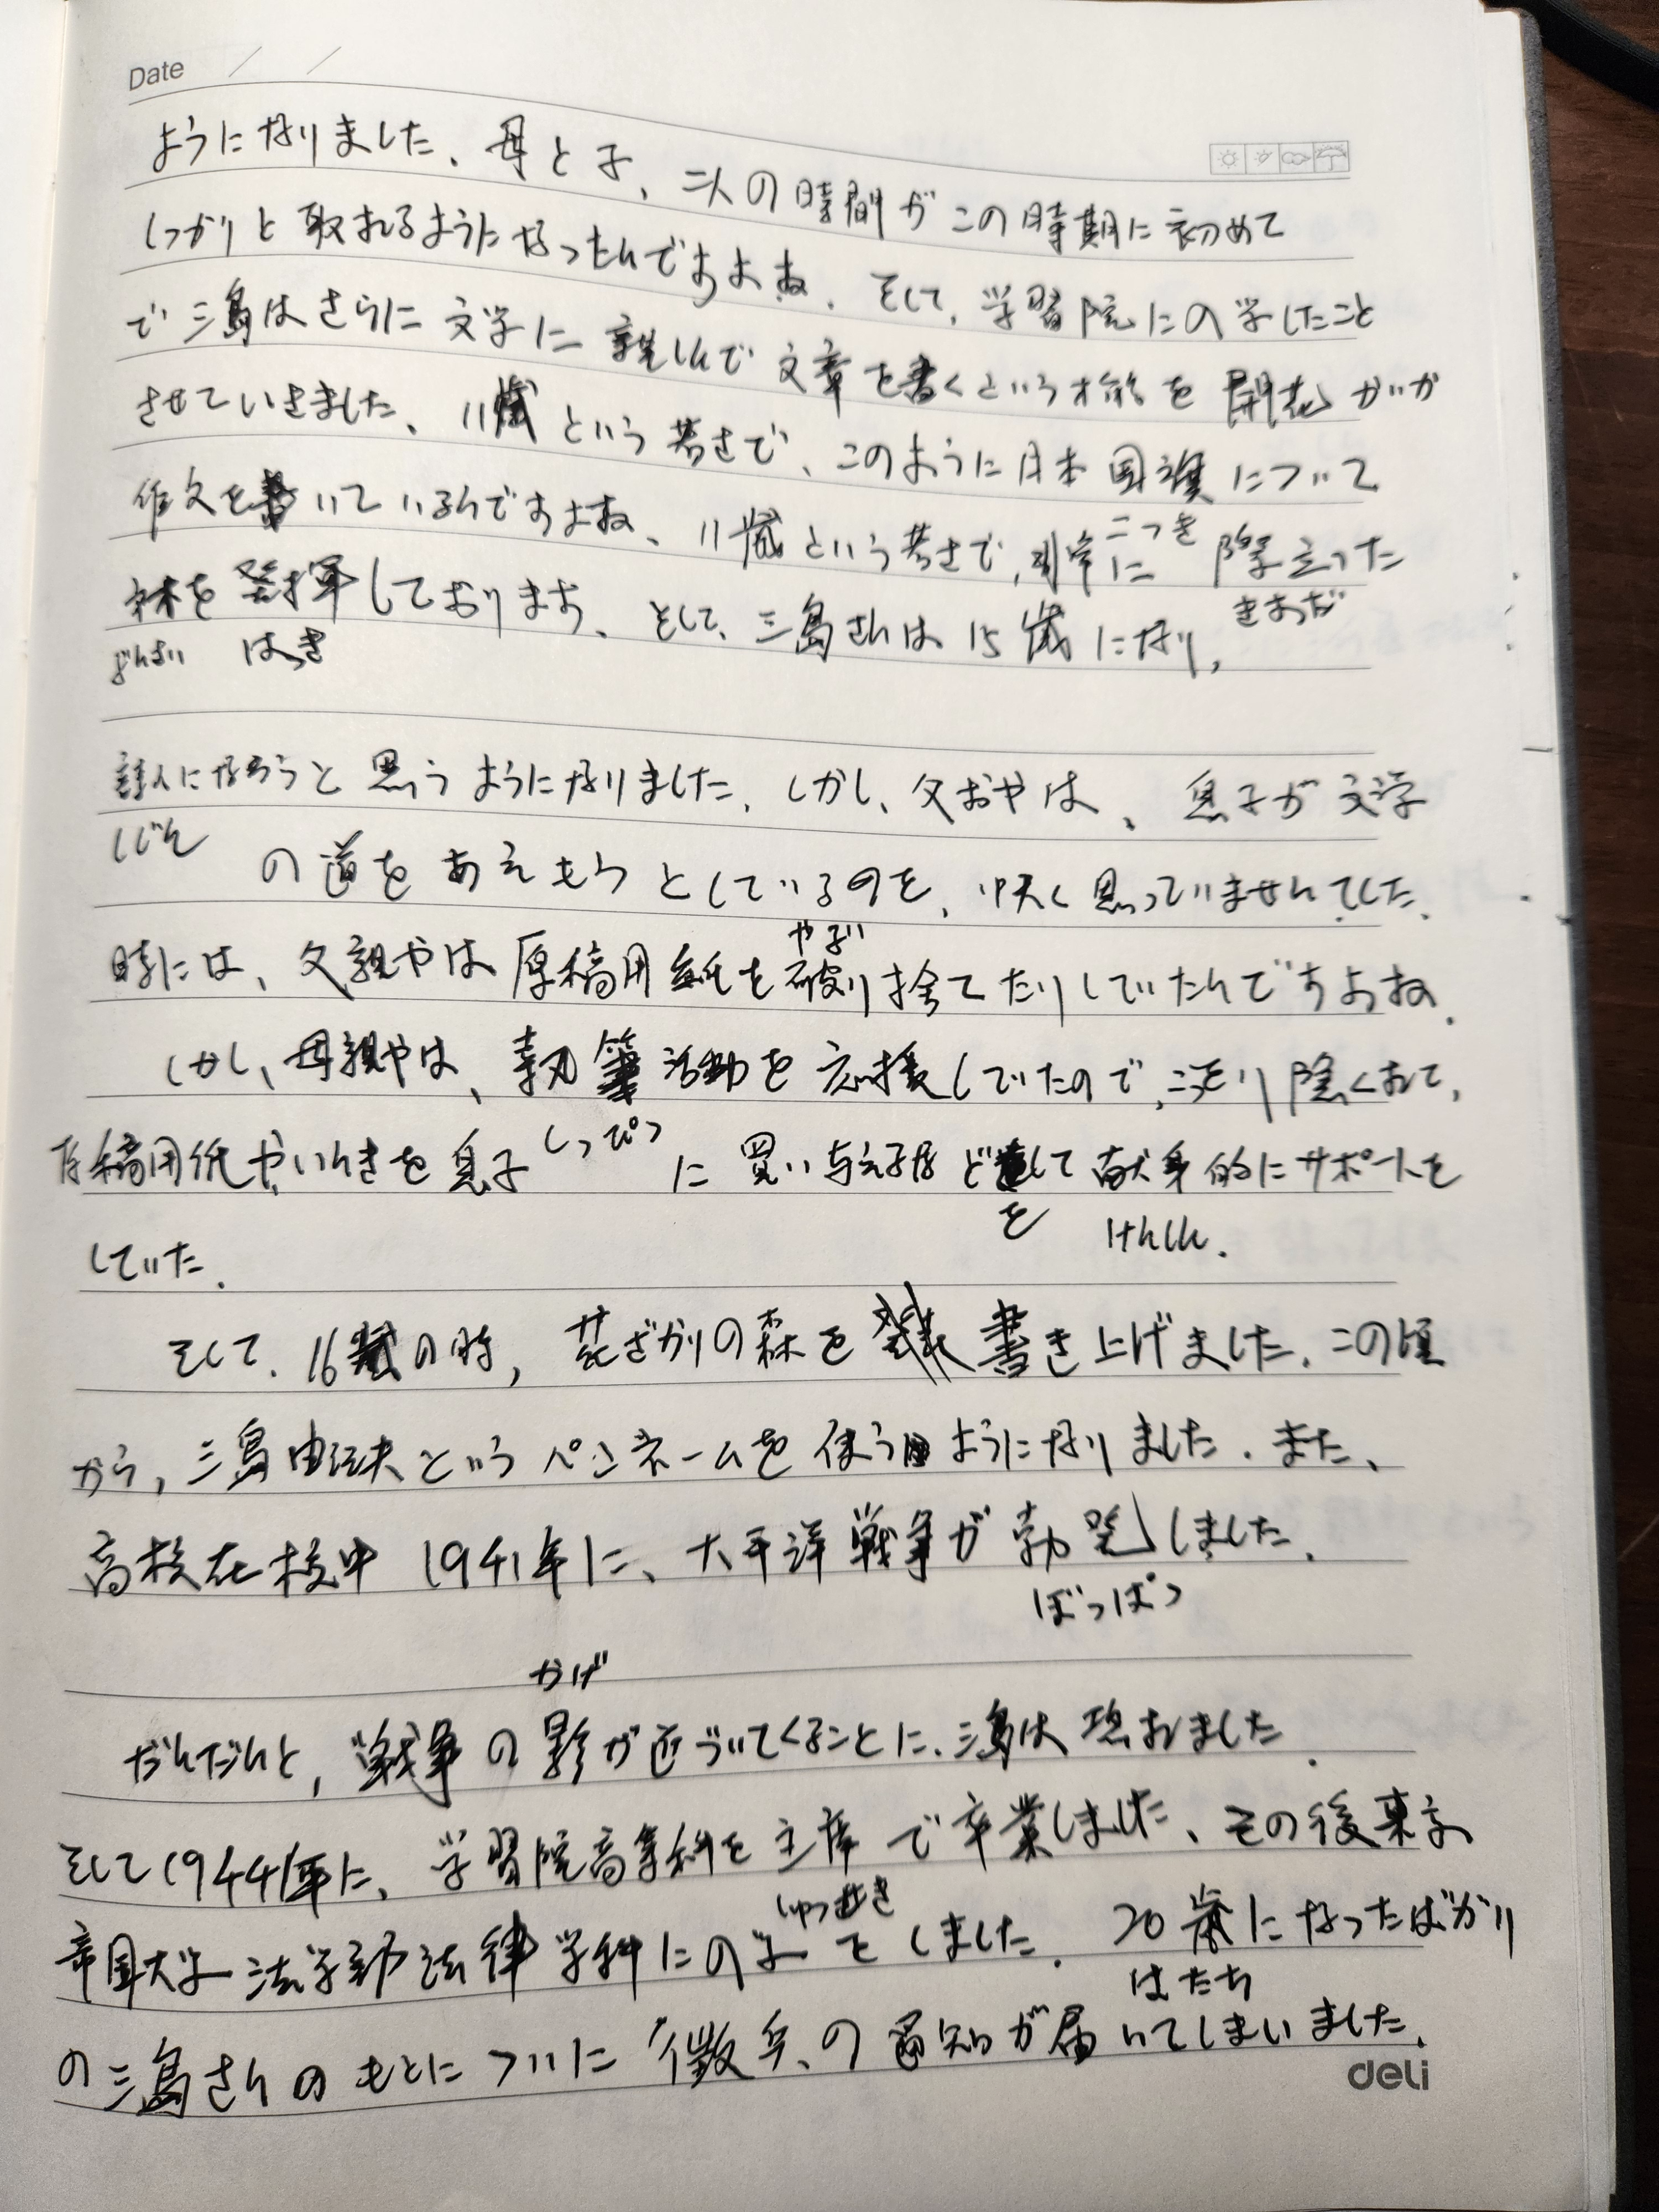 Date / /
ようになりました、母と子、二人の時間がこの時期に初めて
しっかりと取れるようになったんですよね、そして、学習院にの学したこと
で三島はさらに文学に親しんで文章を書くという才能を開花がいか
させていきました、11歳という若さで、このように日本国旗について
こっき
作文を書いているんですよね、11歳という若さで、非常に際立った
きわだ
才を発揮しております、そして、三島さんは15歳になり、
ぶんさい はっき
詩人になろうと思うようになりました、しかし、父おやは、息子が文学
しじん
の道をあゆもうとしているのを、快く思っていませんでした、
やぶ
時には、父親やは原稿用紙を破り捨てたりしていたんですよね、
しかし、母親やは、執筆活動を応援していたので、こっそり隠くれて、
しっぴつ
原稿用紙やいんきを息子に買い与えるなどをして献身的にサポートを
けんしん
していた、
そして、16歳の時、花ざかりの森を書き上げました、この頃
から、三島由紀夫というペンネームを使うようになりました、また、
高校在校中1941年に、太平洋戦争が勃発しました、
ぼっぱつ
かげ
だんだんと、戦争の影が近づいてくることに、三島は恐おました、
そして1944年に、学習院高等科を主席で卒業しました、その後東京
しゅっせき
帝国大学法学部法律学科にの学をしました、20歳になったばかり
はたち
の三島さんのもとについに徴兵、の通知が届いてしまいました、
deli